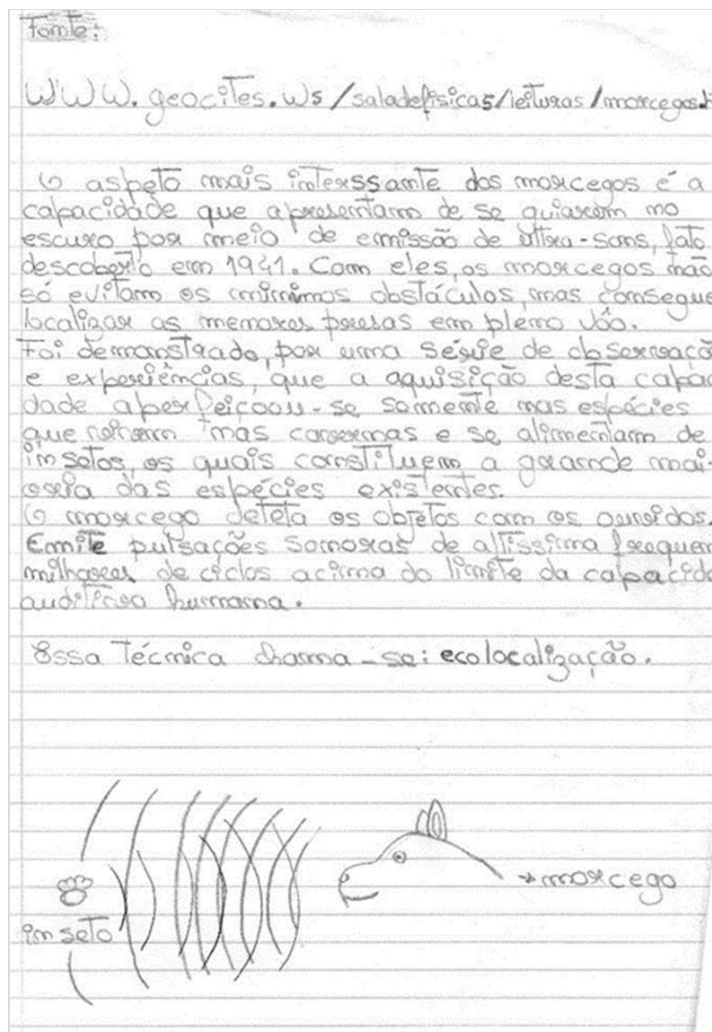 Fonte:
WWW.geocites.Ws/saladefisica5/leituras/morcegos.h
O aspeto mais interssante dos morcegos é a
capacidade que apresentam de se guiarem no
escuro por meio de emissão de ultra-sons, fato
descoberto em 1941. Com eles, os morcegos não
só evitam os mínimos obstáculos, mas consegue
localizar as menores presas em pleno vôo.
Foi demonstrado, por uma série de observaçõ
e experiências, que a aquisição desta capac
dade aperfeiçoou-se somente nas espécies
que vivem nas cavernas e se alimentam de
insetos, os quais constituem a grande mai-
oria das espécies existentes.
O morcego deteta os objetos com os ouvidos.
Emite pulsações sonoras de altíssima frequen
milhares de ciclos acima do limite da capacida
auditiva humana.
Essa Técnica chama-se: ecolocalização.
morcego
inseto